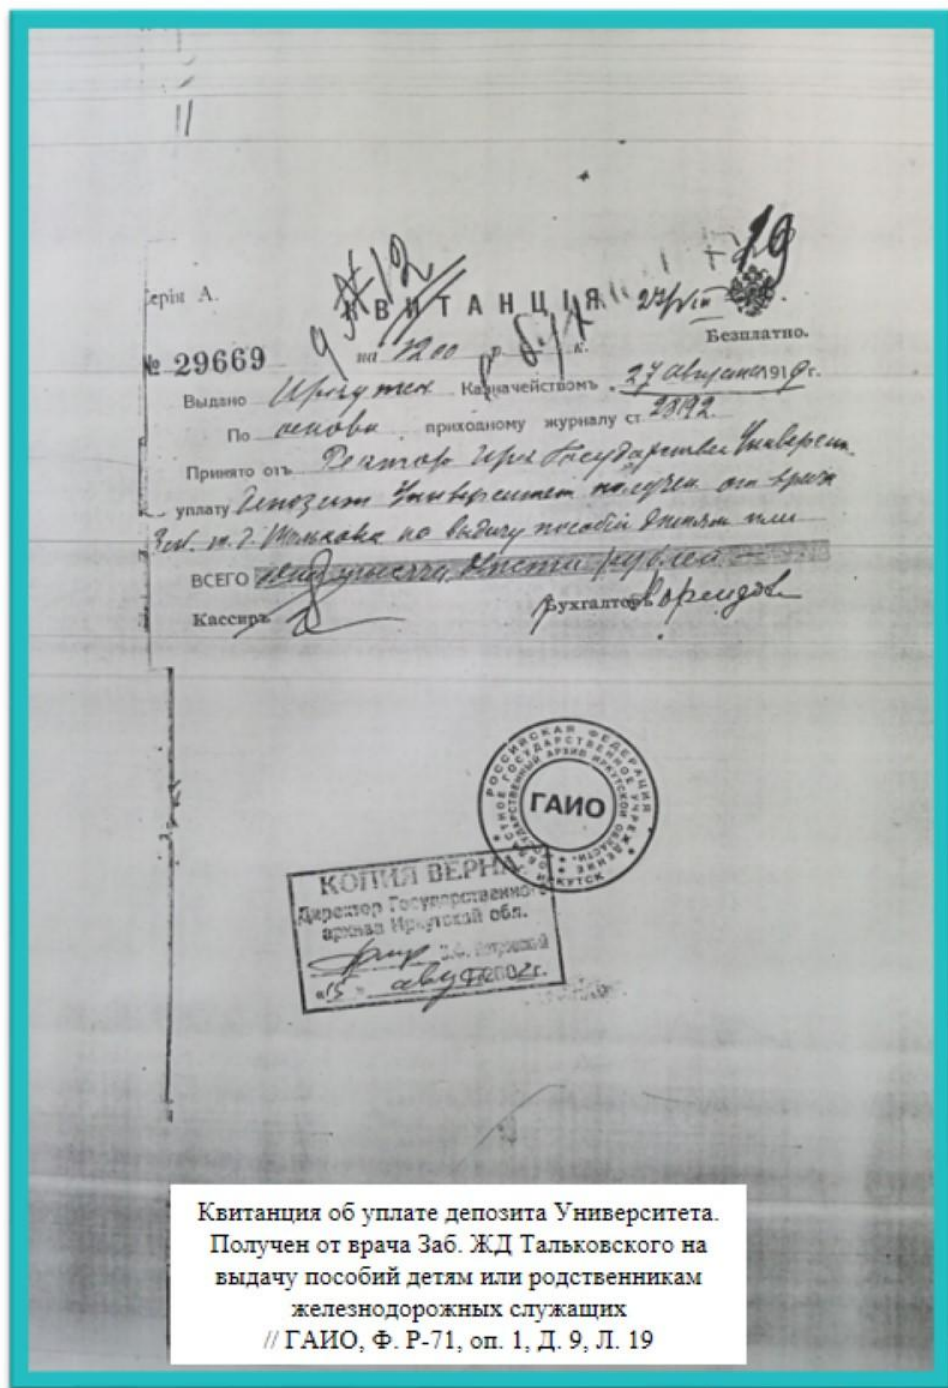 11
19
№ 12
серія А.
КВИТАНЦІЯ
27/VIII
Безплатно.
№ 29669
на 1200 р. к.
Выдано Иркутск Казначействомъ 27 августа 1919 г.
По основн. приходному журналу ст. 2892.
Принято отъ Ректор Ирк Государствен Университ.
уплату Депозит Университет получен от врача
Заб. ж. д. на выдачу пособий детям или
ВСЕГО одна тысяча двести рублей
Кассиръ
Бухгалтеръ
РОССИЙСКАЯ ФЕДЕРАЦИЯ
ОБЛАСТНОЕ ГОСУДАРСТВЕННОЕ УЧРЕЖДЕНИЕ
ГОСУДАРСТВЕННЫЙ АРХИВ ИРКУТСКОЙ ОБЛАСТИ
ИРКУТСК
ГАИО
КОПИЯ ВЕРНА
Директор Государственного
архива Иркутской обл.
"15" август 2002г.
Квитанция об уплате депозита Университета.
Получен от врача Заб. ЖД Тальковского на
выдачу пособий детям или родственникам
железнодорожных служащих
// ГАИО, Ф. Р-71, оп. 1, Д. 9, Л. 19